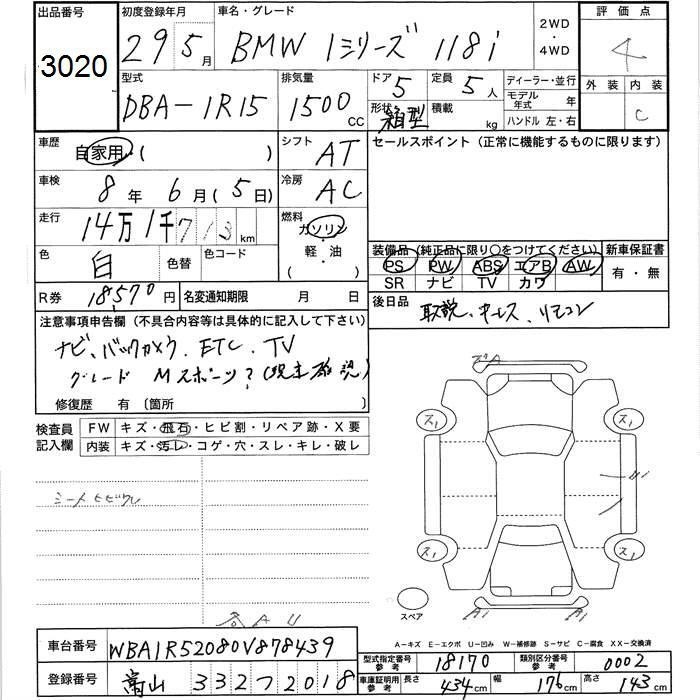 出品番号 初度登録年月 車名・グレード 2WD・4WD 評価点
3020 29 5月 BMW 1シリーズ 118i 4
型式 排気量 ドア 5 定員 5人 ディーラー・並行 外装 内装
DBA-1R15 1500cc 形状 箱型 積載 kg モデル年式 年 C
ハンドル 左・右
車歴 自家用・( ) シフト AT セールスポイント (正常に機能するものに限ります)
車検 8年 6月 (5日) 冷房 AC
走行 14万1千713km 燃料 ガソリン・軽・油・( )
色 白 色替 色コード 装備品 (純正品に限り○をつけてください) 新車保証書
PS PW ABS エアB AW 有・無
SR ナビ TV カワ
R券 18570円 名変通知期限 月 日 後日品 取説、キーレス、リモコン
注意事項申告欄 (不具合内容等は具体的に記入して下さい)
ナビ、バックカメラ、ETC、TV
グレード Mスポーツ?(現車確認)
修復歴 有 〔箇所 〕
検査員記入欄 FW キズ・飛石・ヒビ割・リペア跡・X要
内装 キズ・汚レ・コゲ・穴・スレ・キレ・破レ
シートヒビワレ
ズA
ス1 ス1
ス1 ス1
スペア A1 A1
A U
A－キズ E－エクボ U－凹み W－補修跡 S－サビ C－腐食 XX－交換済
車台番号 WBA1R52080V878439 型式指定番号 参考 18170 類別区分番号 参考 0002
登録番号 富山 332 フ 2018 車庫証明用 参考 長さ 434cm 幅 176cm 高さ 143cm